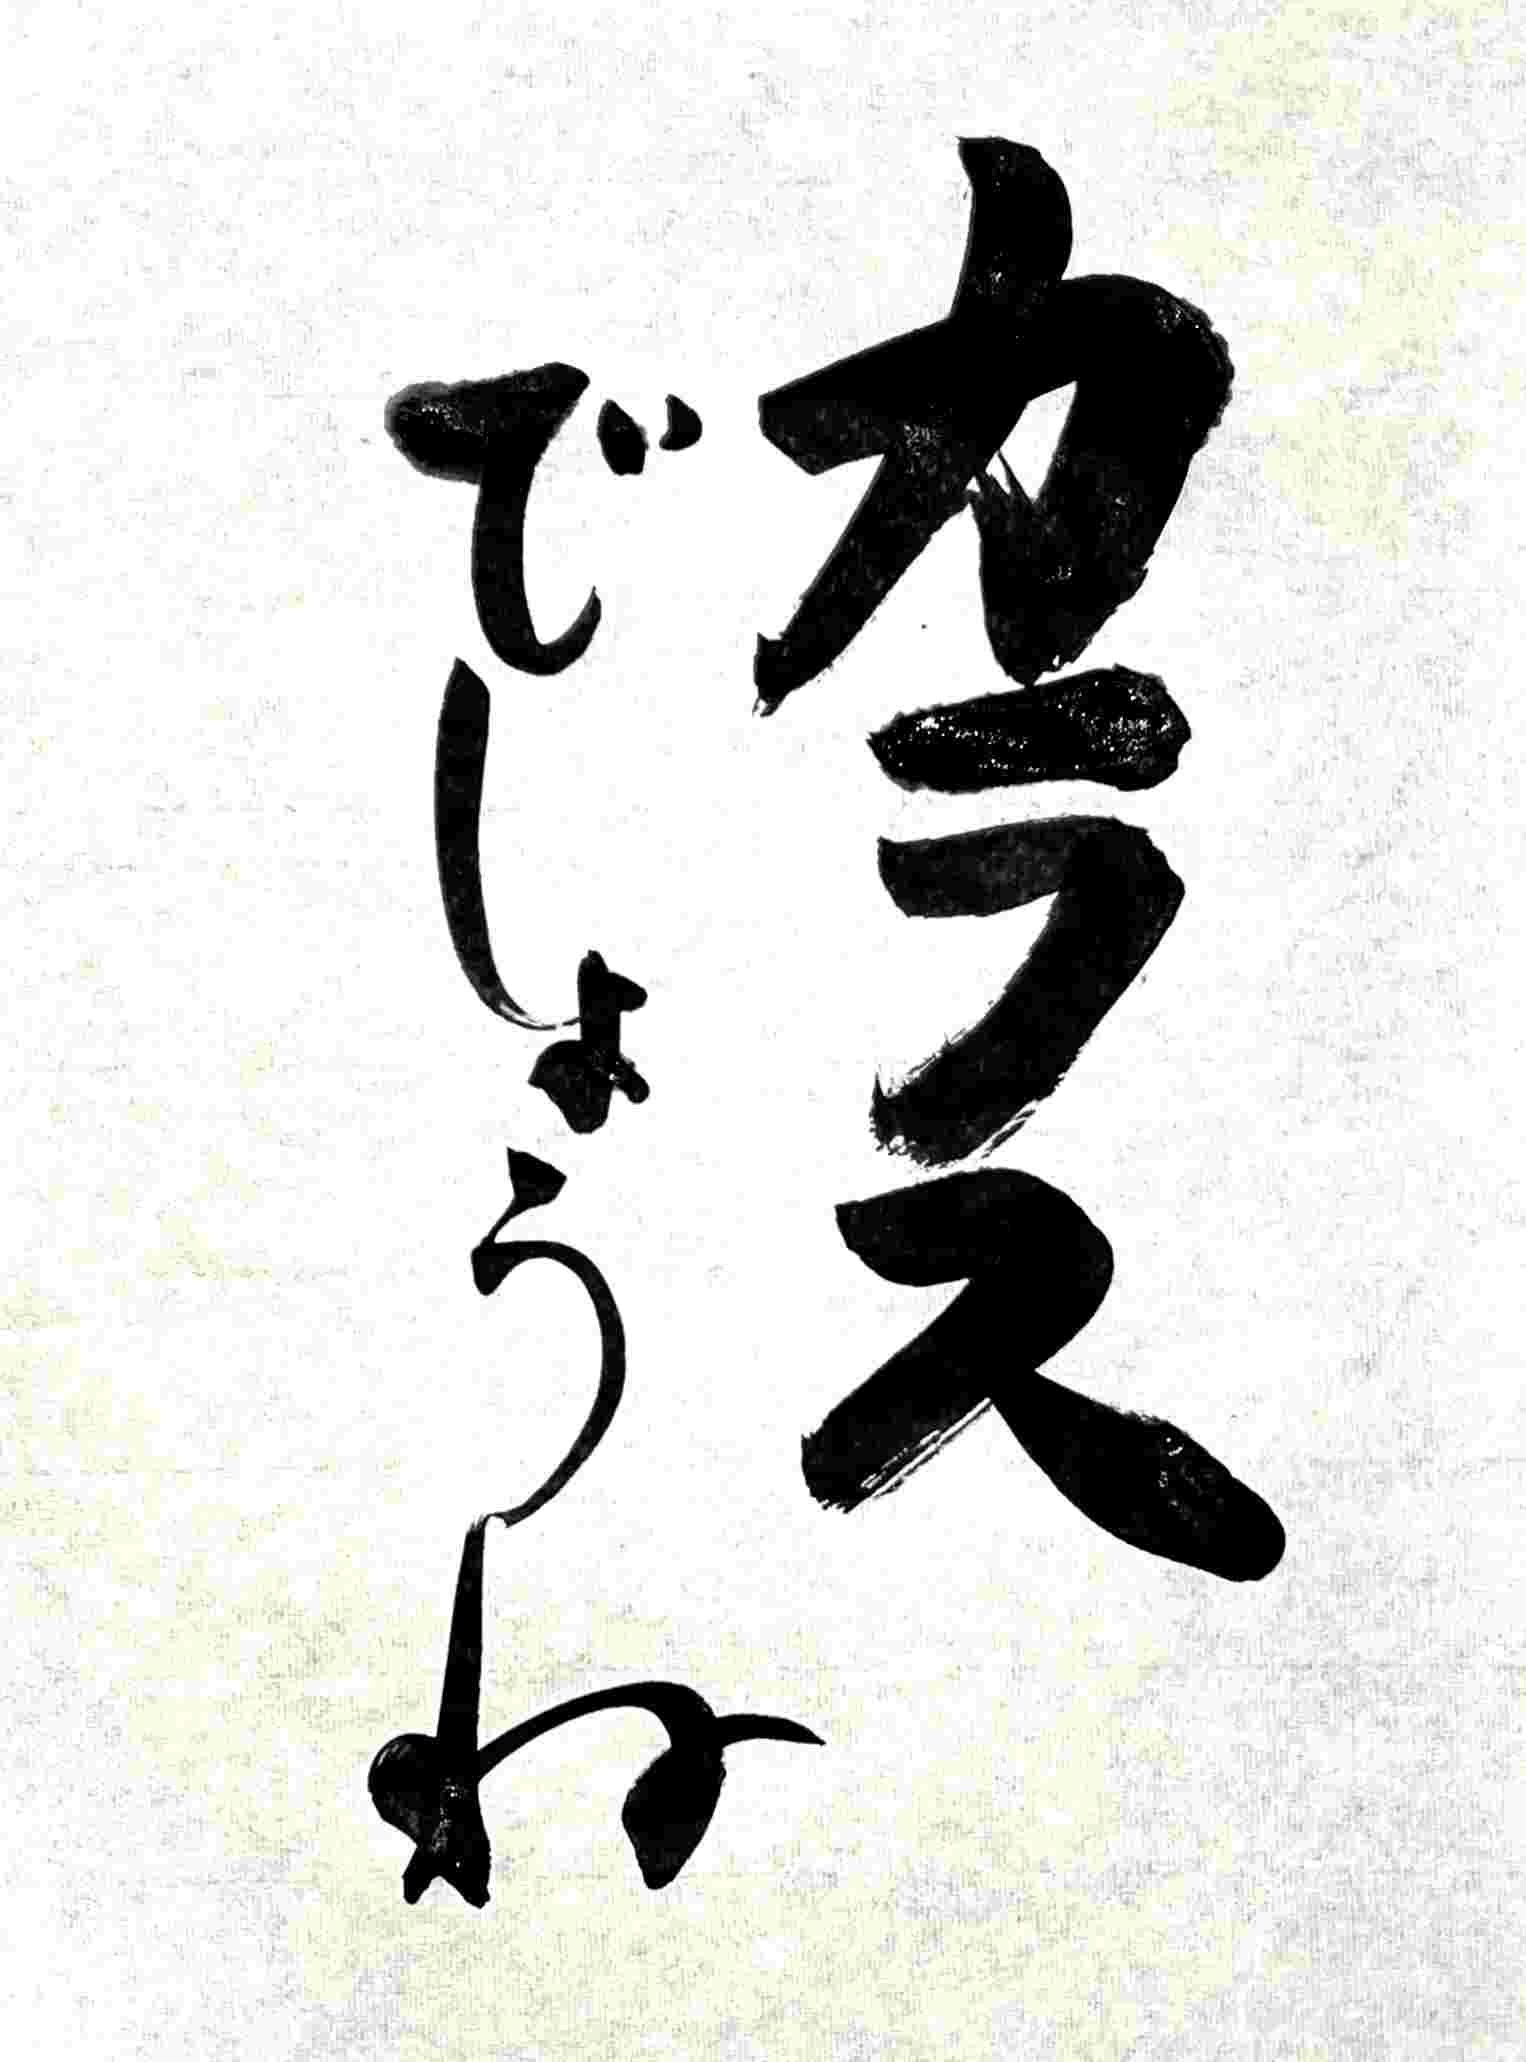 カラス
でしょうね